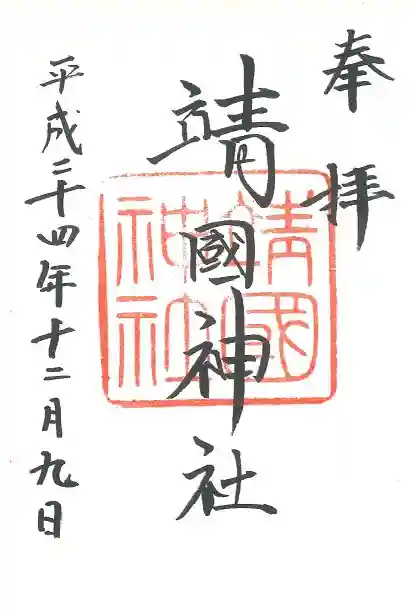 奉拝
靖國神社
靖國神社
平成二十四年十二月九日